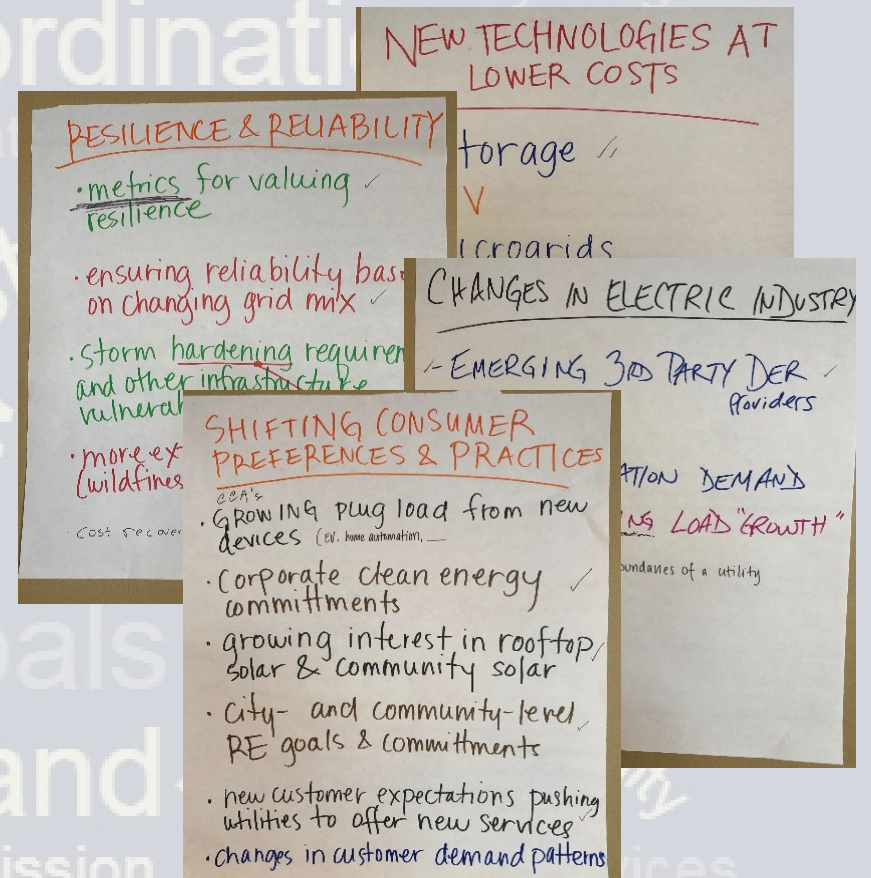 rdinati
NEW TECHNOLOGIES AT
LOWER COSTS
torage
V
icrogrids
RESILIENCE & RELIABILITY
· metrics for valuing
resilience
· ensuring reliability bas
on changing grid mix
· Storm hardening requirem
and other infrastructure
vulnerab
· more ex
(wildfires
· Cost recover
CHANGES IN ELECTRIC INDUSTRY
- EMERGING 3RD PARTY DER
Providers
ATION DEMAND
ING LOAD "GROWTH"
oundaries of a utility
SHIFTING CONSUMER
PREFERENCES & PRACTICES
CCA's
· GROWING plug load from new
devices (EV, home automation, __
· Corporate clean energy
committments
· growing interest in rooftop
solar & community solar
· City- and community-level
RE goals & committments
· new customer expectations pushing
utilities to offer new services
· changes in customer demand patterns
oals
and
ission
ices